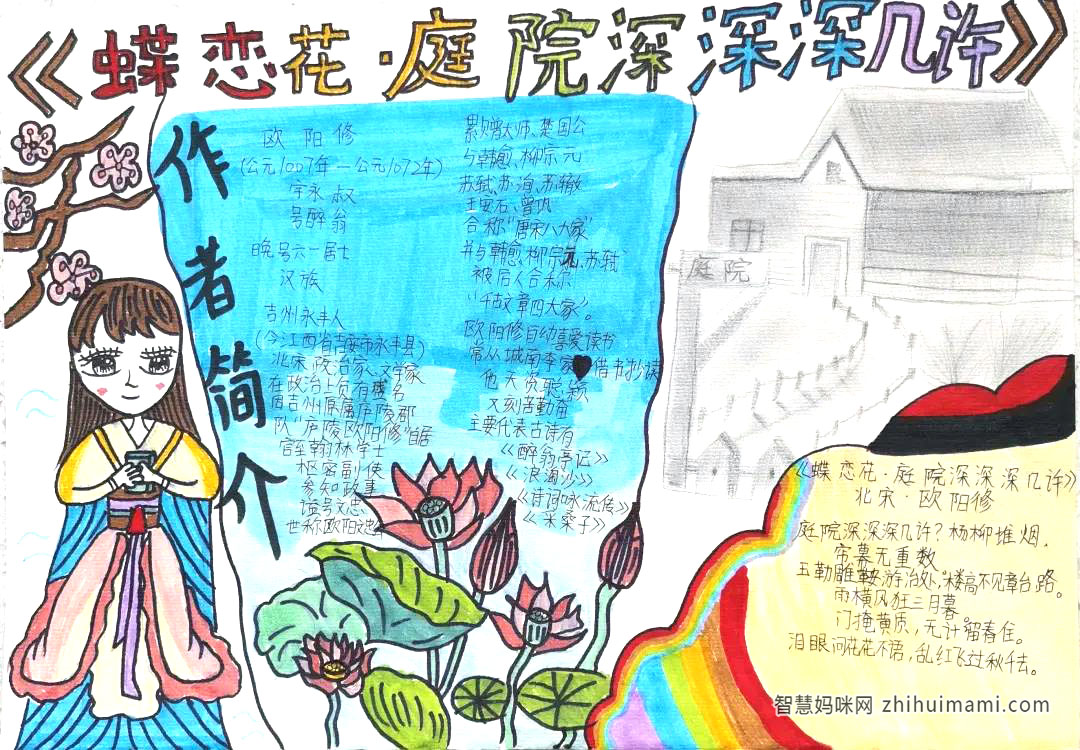 《蝶恋花·庭院深深深几许》
作者简介
欧阳修
(公元1007年—公元1072年)
字永叔
号醉翁
晚号六一居士
汉族
吉州永丰人
(今江西省吉安市永丰县)
北宋政治家、文学家
在政治上负有盛名
因吉州原属庐陵郡
以"庐陵欧阳修"自居
官至翰林学士
枢密副使
参知政事
谥号文忠
世称欧阳文忠
累赠太师、楚国公
与韩愈、柳宗元
苏轼、苏洵、苏辙
王安石、曾巩
合称"唐宋八大家"
并与韩愈、柳宗元、苏轼
被后人合称
"千古文章四大家"。
欧阳修自幼喜爱读书
常从城南李家借书抄读
他天资聪颖
又刻苦勤奋
主要代表古诗有
《醉翁亭记》
《浪淘沙》
《诗词咏流传》
《采桑子》
庭院
《蝶恋花·庭院深深深几许》
北宋·欧阳修
庭院深深深几许?杨柳堆烟,
帘幕无重数
玉勒雕鞍游冶处。楼高不见章台路。
雨横风狂三月暮。
门掩黄质,无计留春住。
泪眼问花花不语,乱红飞过秋千去。
智慧妈咪网 zhihuimami.com